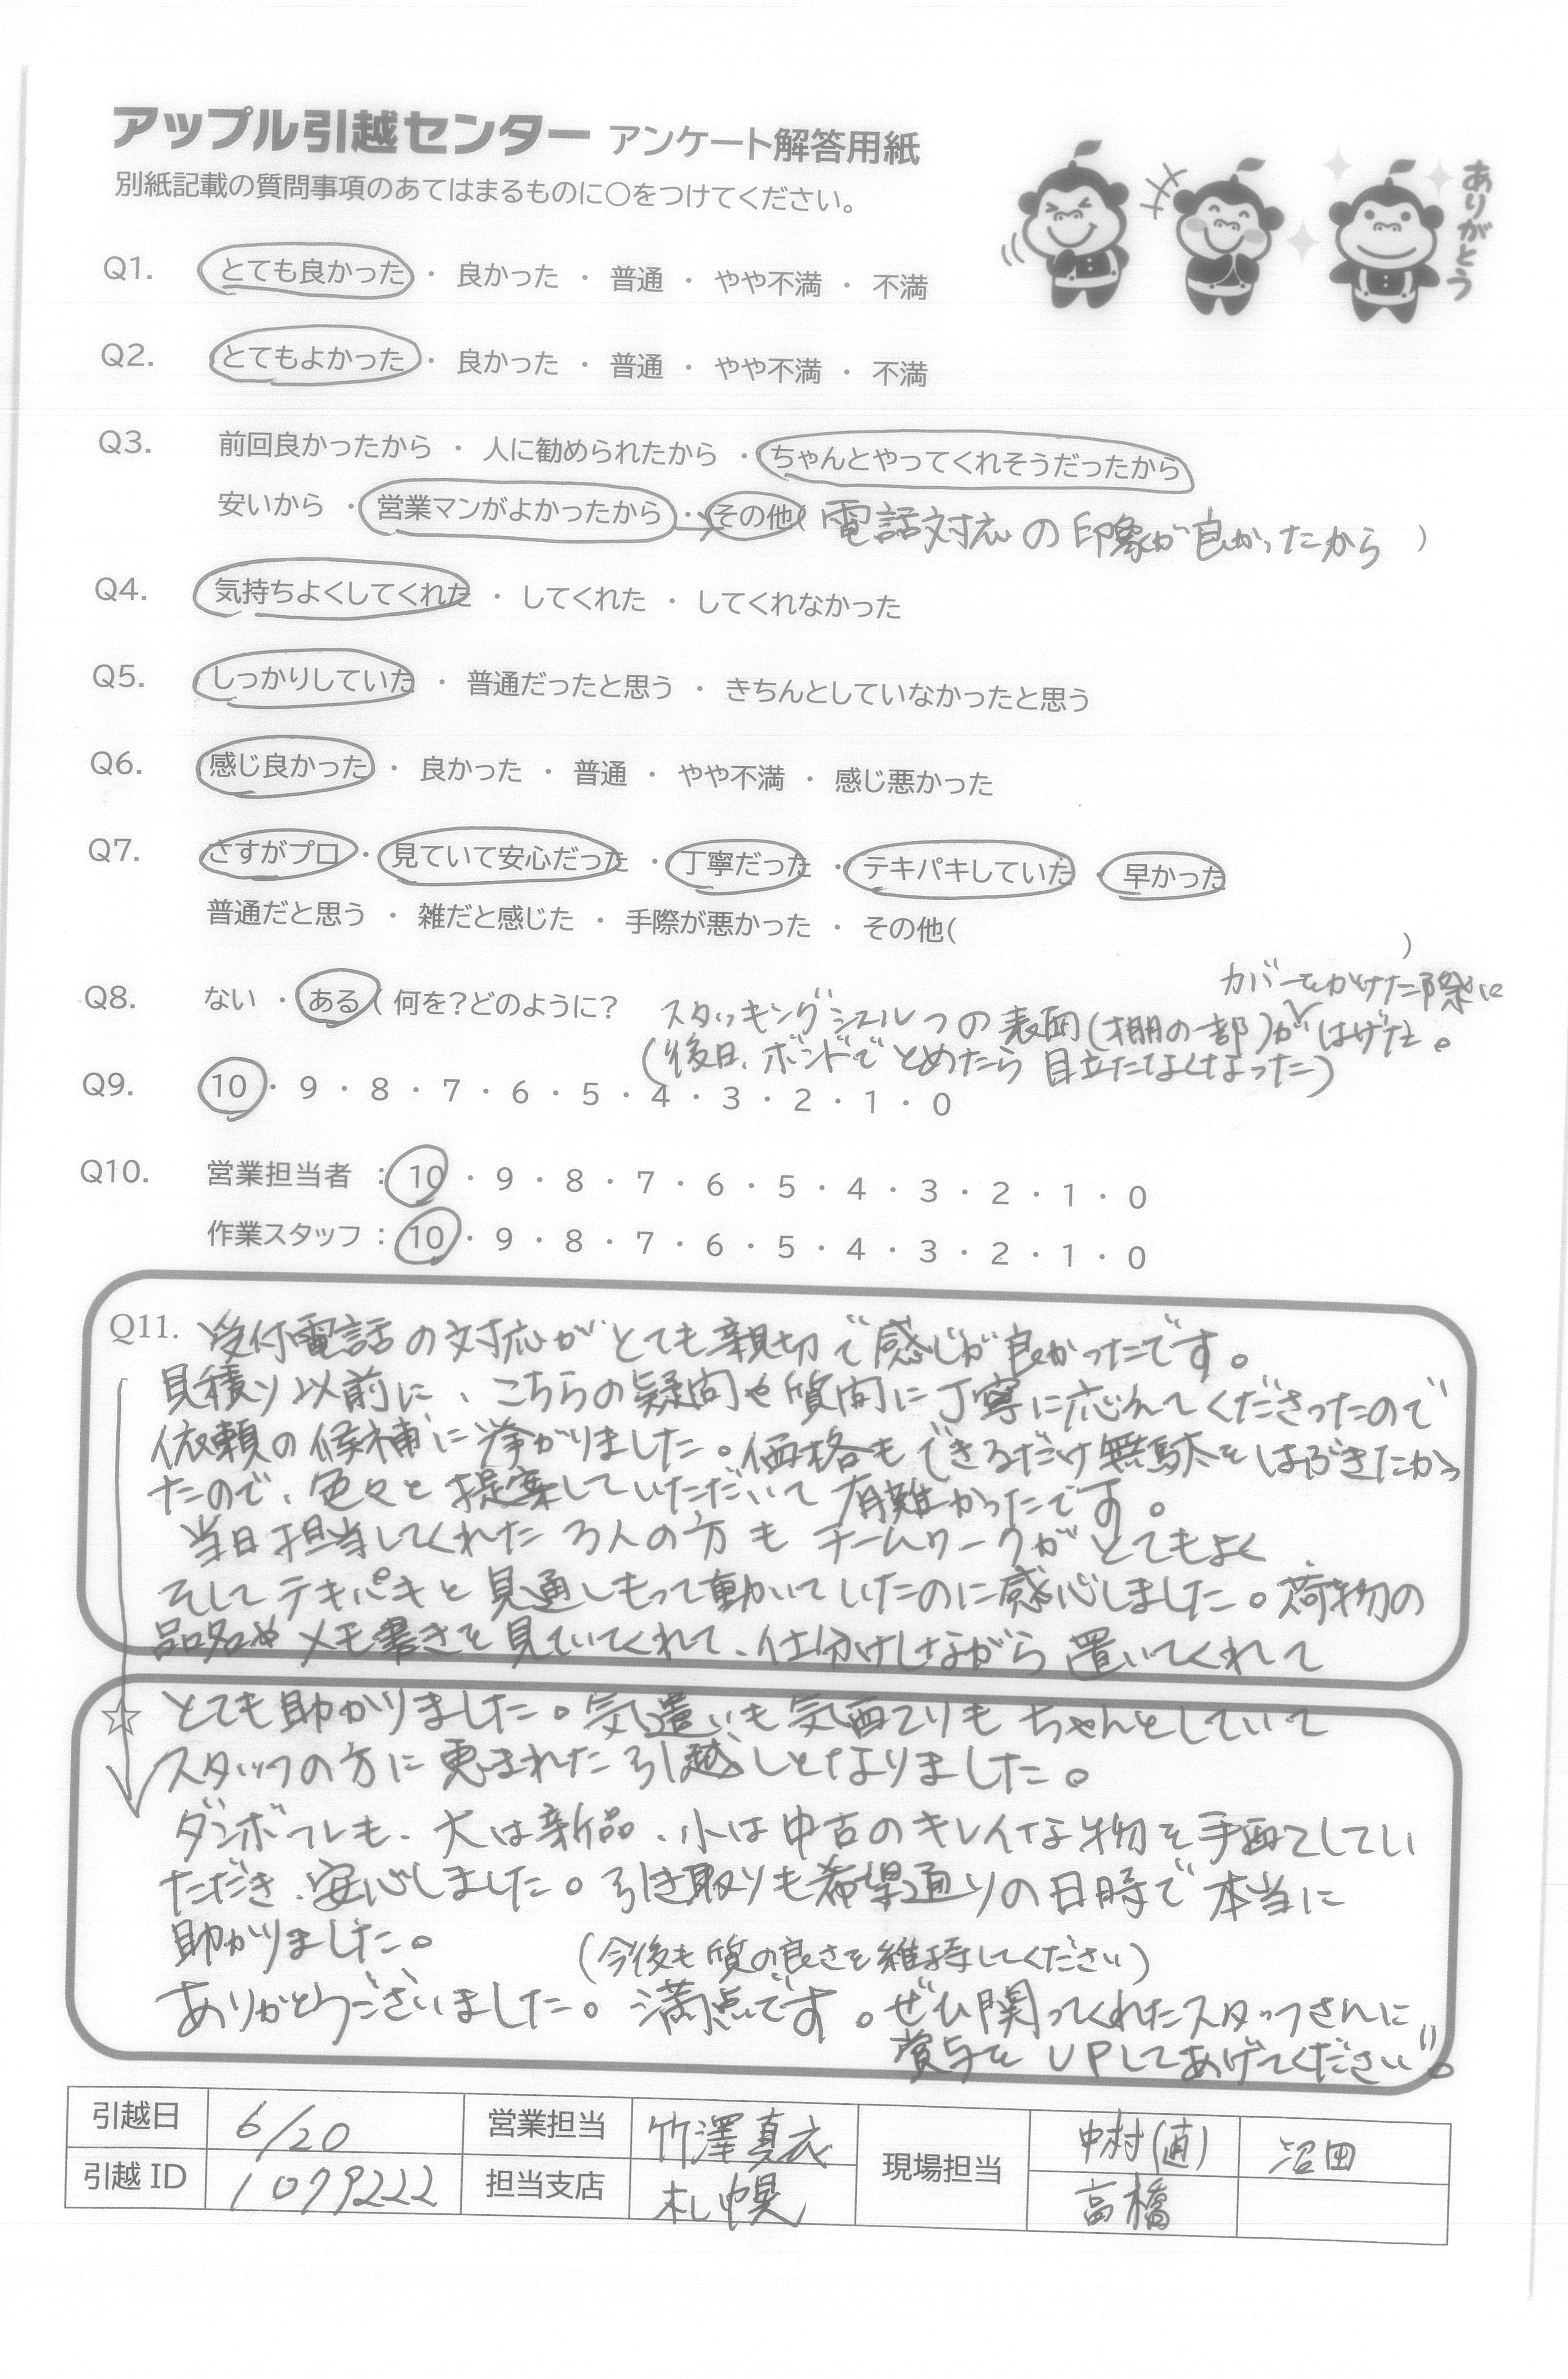 アップル引越センター アンケート解答用紙
別紙記載の質問事項のあてはまるものに〇をつけてください。
ありがとう
Q1. とても良かった ・ 良かった ・ 普通 ・ やや不満 ・ 不満
Q2. とてもよかった ・ 良かった ・ 普通 ・ やや不満 ・ 不満
Q3. 前回良かったから ・ 人に勧められたから ・ ちゃんとやってくれそうだったから
安いから ・ 営業マンがよかったから ・ その他( 電話対応の印象が良かったから )
Q4. 気持ちよくしてくれた ・ してくれた ・ してくれなかった
Q5. しっかりしていた ・ 普通だったと思う ・ きちんとしていなかったと思う
Q6. 感じ良かった ・ 良かった ・ 普通 ・ やや不満 ・ 感じ悪かった
Q7. さすがプロ ・ 見ていて安心だった ・ 丁寧だった ・ テキパキしていた ・ 早かった
普通だと思う ・ 雑だと感じた ・ 手際が悪かった ・ その他( )
カバーをかけた際に
Q8. ない ・ ある ( 何を?どのように? スタッキングシェルフの表面(棚の一部)がはげた。
(後日、ボンドでとめたら目立たなくなった)
Q9. 10 ・ 9 ・ 8 ・ 7 ・ 6 ・ 5 ・ 4 ・ 3 ・ 2 ・ 1 ・ 0
Q10. 営業担当者 : 10 ・ 9 ・ 8 ・ 7 ・ 6 ・ 5 ・ 4 ・ 3 ・ 2 ・ 1 ・ 0
作業スタッフ : 10 ・ 9 ・ 8 ・ 7 ・ 6 ・ 5 ・ 4 ・ 3 ・ 2 ・ 1 ・ 0
Q11. 受付電話の対応がとても親切で感じが良かったです。
見積り以前に、こちらの疑問や質問に丁寧に応えてくださったので
依頼の候補に挙がりました。価格もできるだけ無駄をはぶきたかっ
たので、色々と提案していただいて有難かったです。
当日担当してくれた3人の方もチームワークがとてもよく
そしてテキパキと見通しもって動いていたのに感心しました。荷物の
品名やメモ書きを見ていてくれて、仕分けしながら置いてくれて
☆ とても助かりました。気遣いも気配りもちゃんとしていて
スタッフの方に恵まれた引越しとなりました。
ダンボールも、大は新品、小は中古のキレイな物を手配してい
ただき、安心しました。引き取りも希望通りの日時で本当に
助かりました。
(今後も質の良さを維持してください)
ありがとうございました。満点です。ぜひ関ってくれたスタッフさんに
賞与をUPしてあげてください"。
引越日 6/20 営業担当 竹澤真衣 現場担当 中村(直) 沼田
引越ID 1079222 担当支店 札幌 高橋